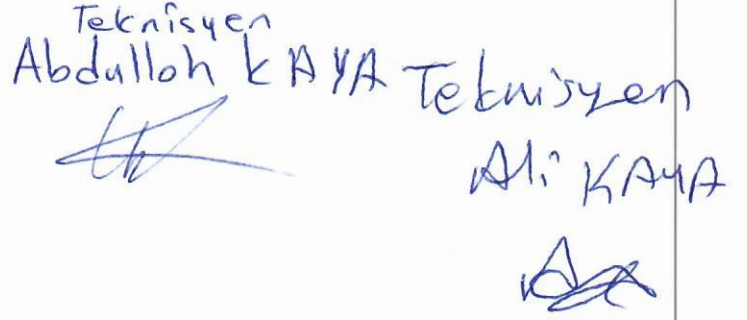 Teknisyen
Abdulloh KAYA
Teknisyen
Ali KAYA